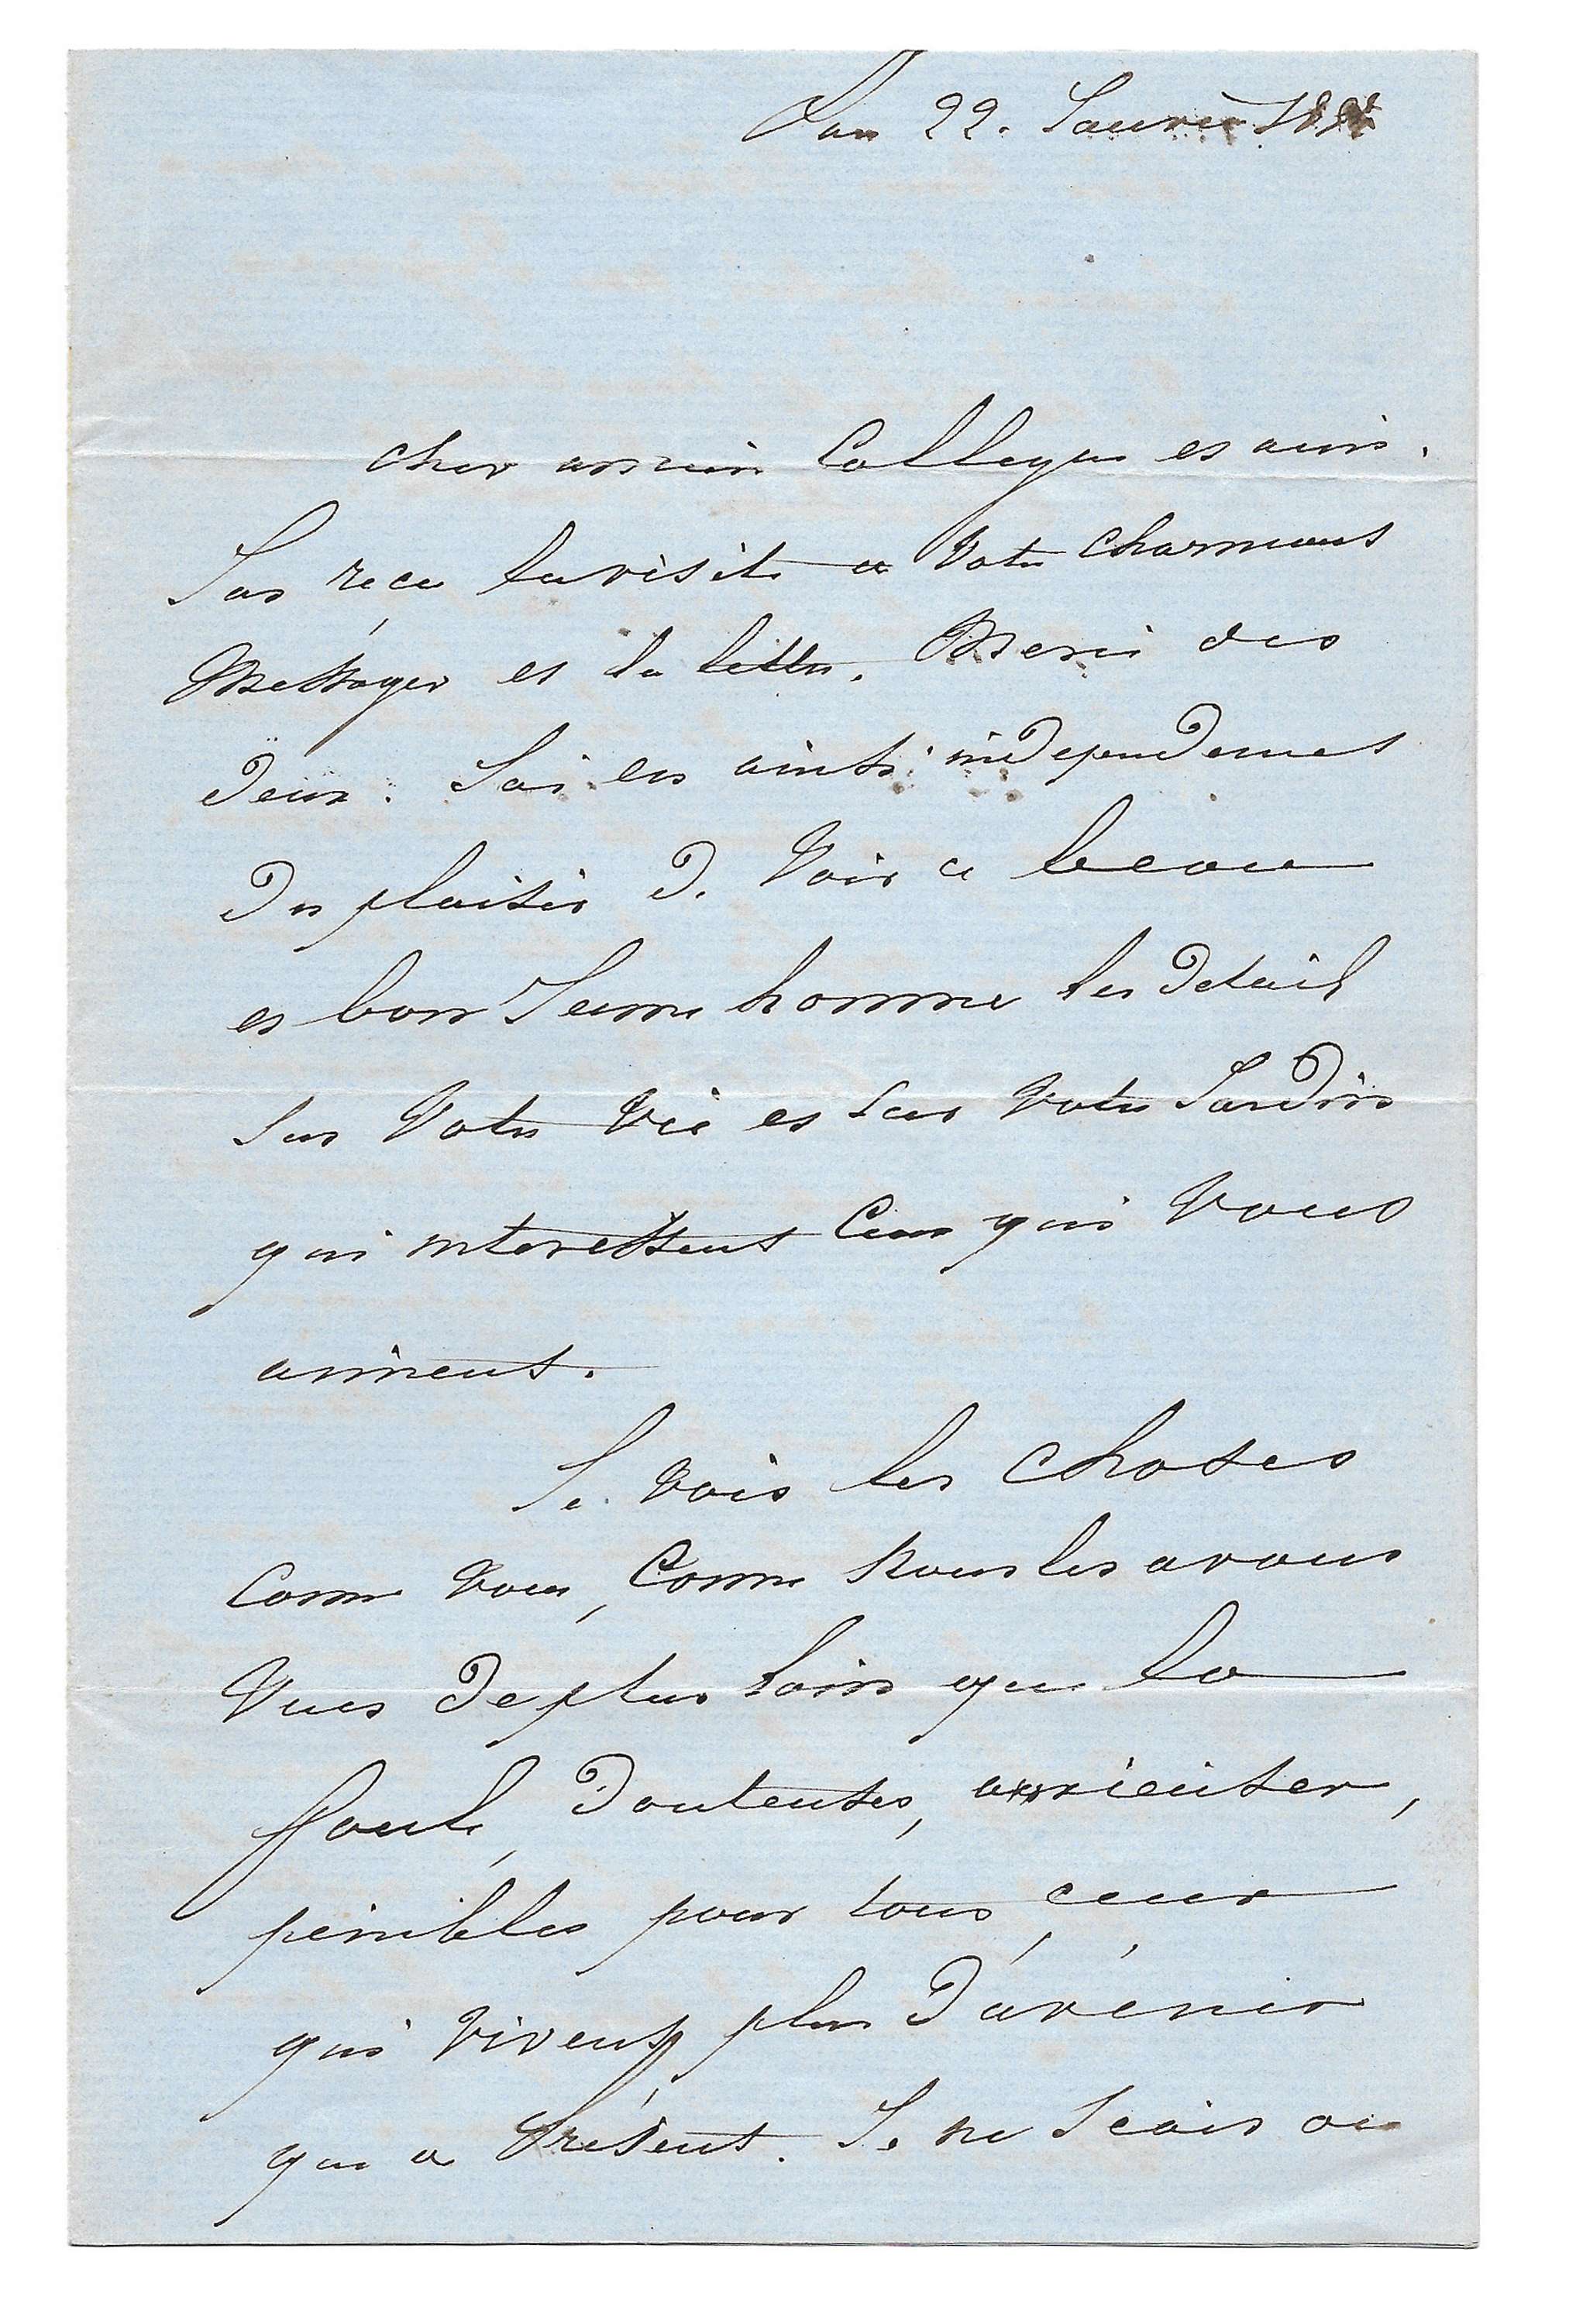 22. Janvier
cher ancien Collegue et ami.
J'ai reçu la visite de Votre charmant
Messager et la lettre. Merci des
deux. J'ai eu ainsi independemment
du plaisir de Voir ce beau
et bon Jeune homme les detail
sur Votre Vie et sur Votre Jardin
qui interessent Ceux qui Vous
aiment.
Je Vois les choses
Comme Vous, Comme Nous les avons
Vues de plus loin que la
foule, douteuses, anxieuses,
penibles pour tous ceux
qui vivent plus d'avenir
que de Présent. Je ne Scais ou